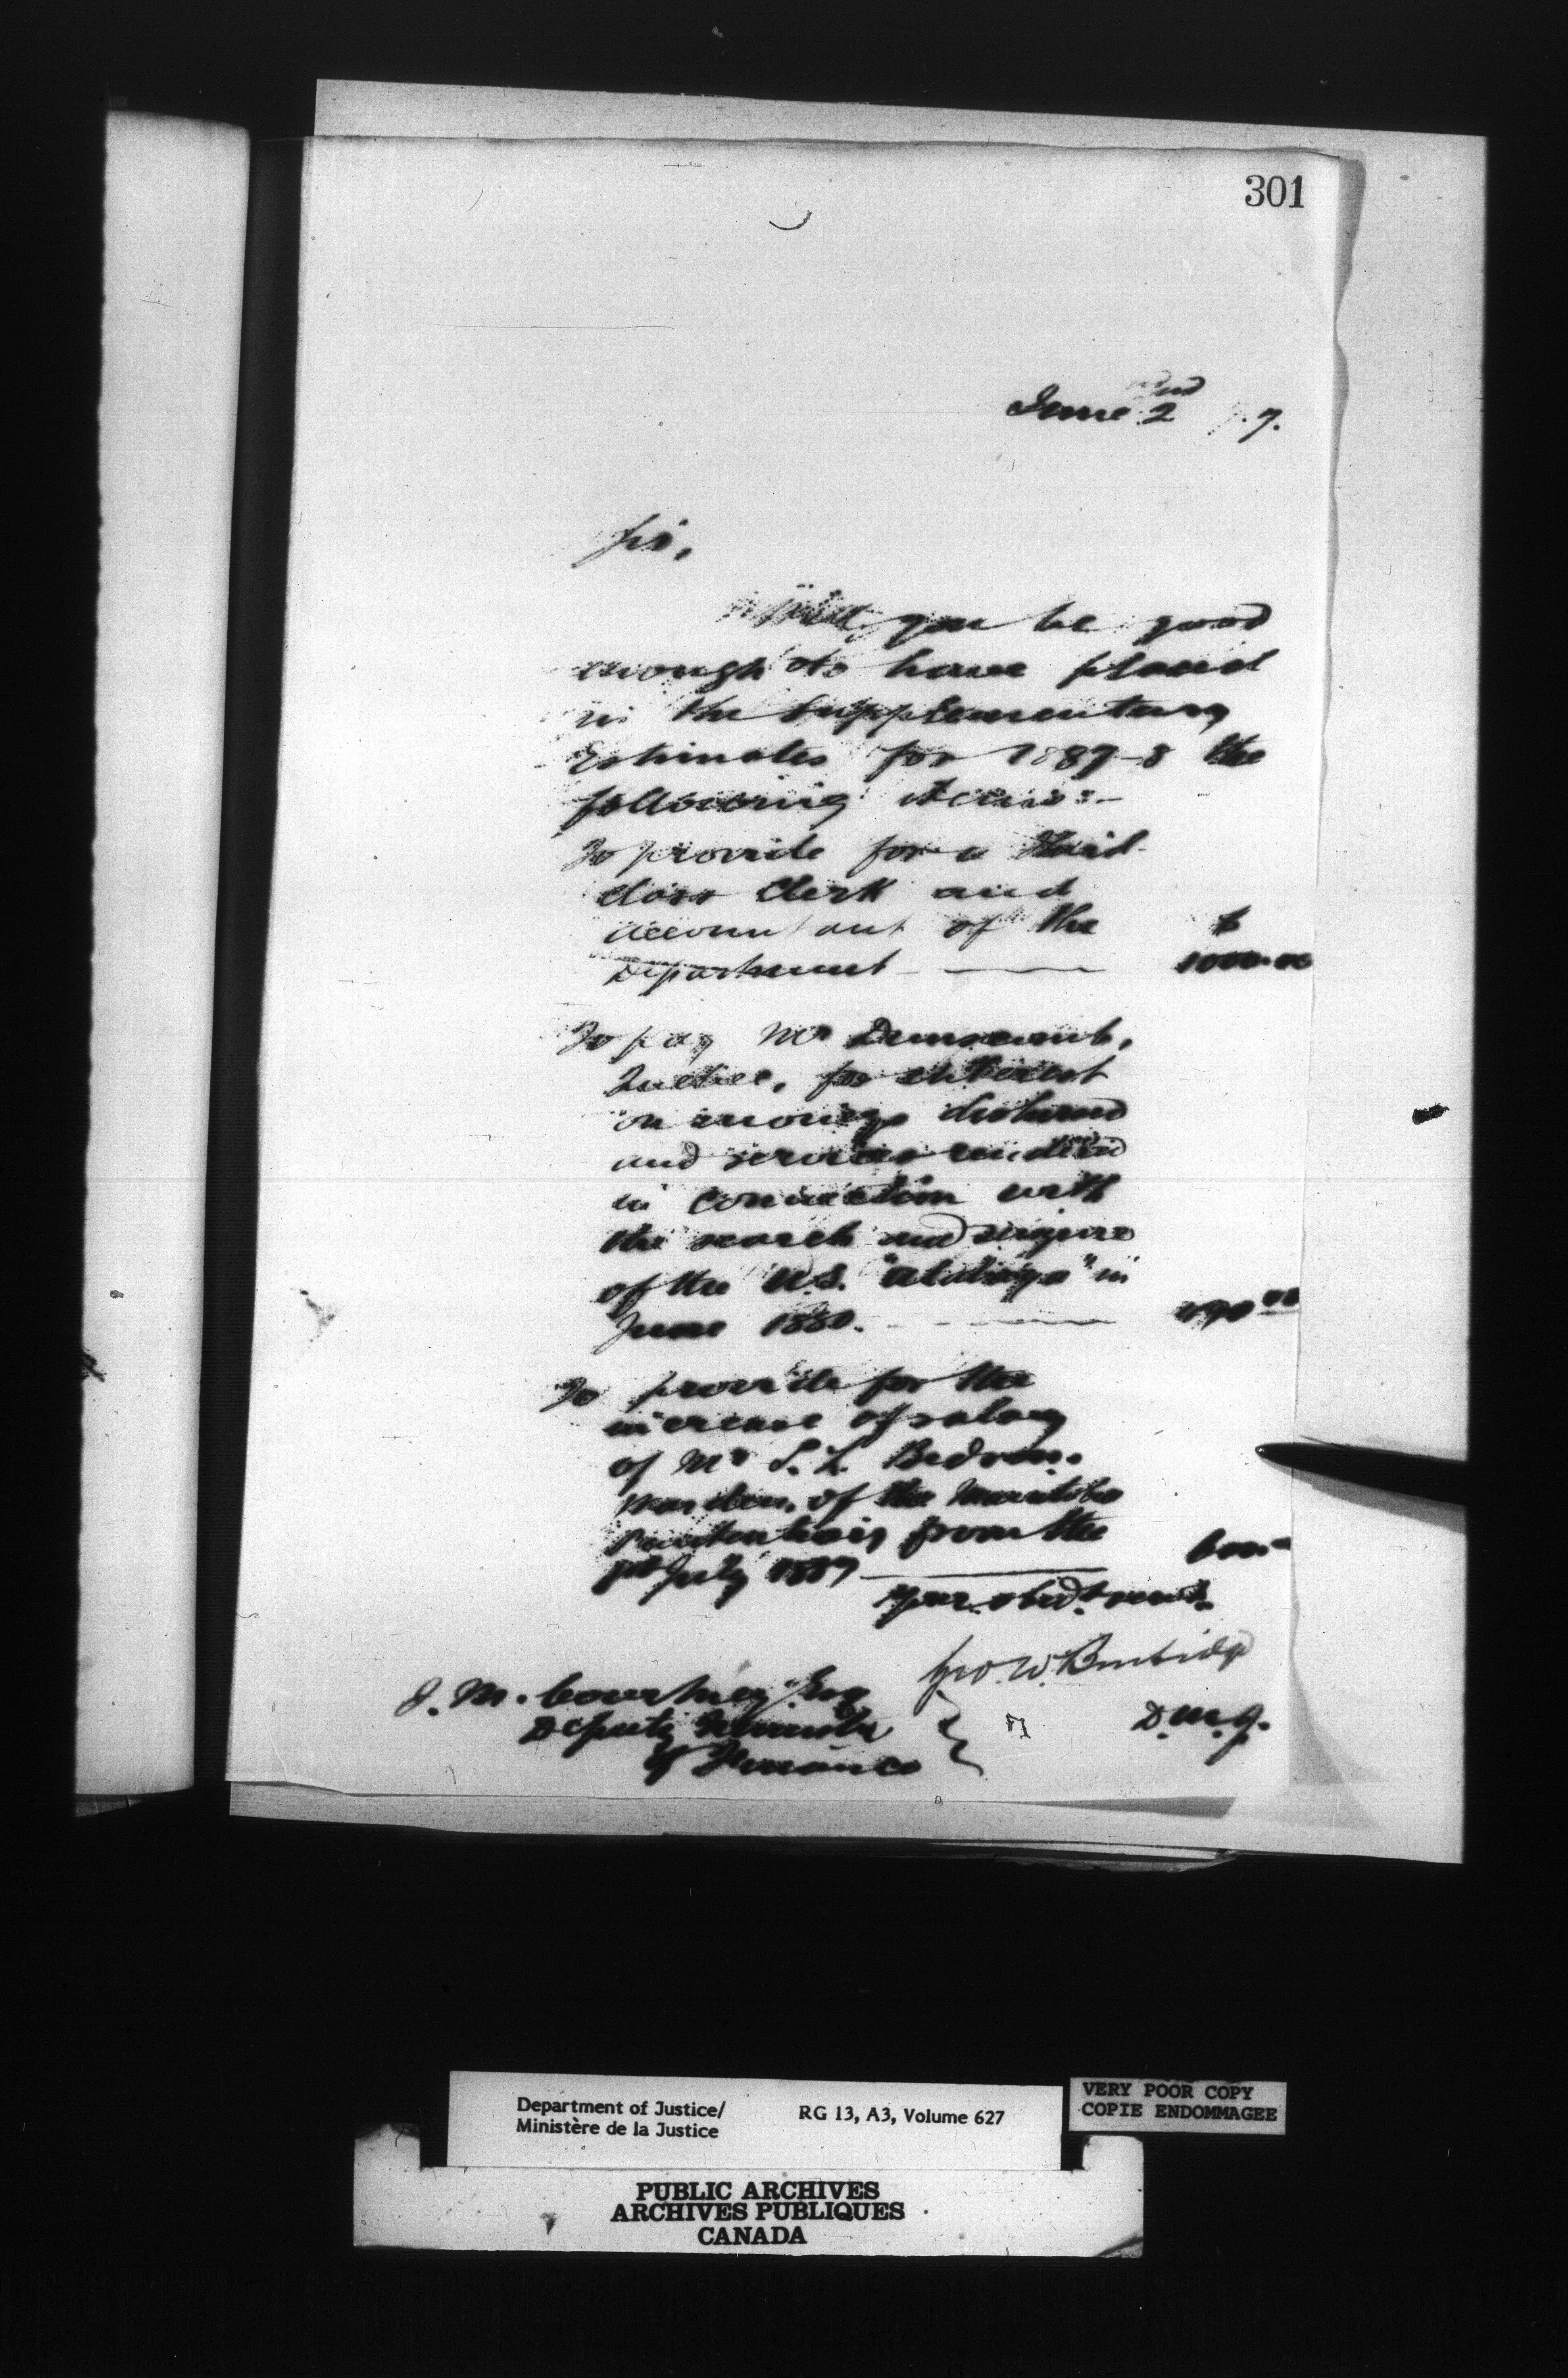 301
June 2nd 7.
Sir,
Will you be good
enough to have placed
in the Supplementary
Estimates for 1887-8 the
following items:-
To provide for a third
class Clerk and
accountant of the $
Department 1000.00
To pay Mr Dunscomb,
Quebec, for interest
on moneys disbursed
and services rendered
in connection with
the search and seizure
of the U.S. "Atalaya" in
June 1880.
To provide for the
increase of salary
of Mr S. L. Bedson.
Warden, of the Manitoba
Penitentiary from the
1st July 1887
Your obdt. servt.
Geo. W. Burbidge
J. M. Courtney Esq
D.M.J.
Deputy Minister
of Finance
Department of Justice/
Ministère de la Justice
RG 13, A3, Volume 627
VERY POOR COPY
COPIE ENDOMMAGEE
PUBLIC ARCHIVES
ARCHIVES PUBLIQUES
CANADA